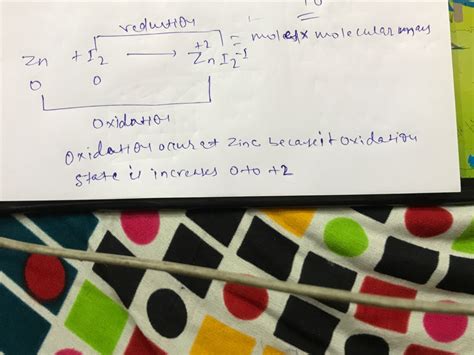 reduction
+2 = moles x molecular mass
Zn + I2 → ZnI2 -1
0 0
oxidation
Oxidation occurs at Zinc because it oxidation
state is increases 0 to +2